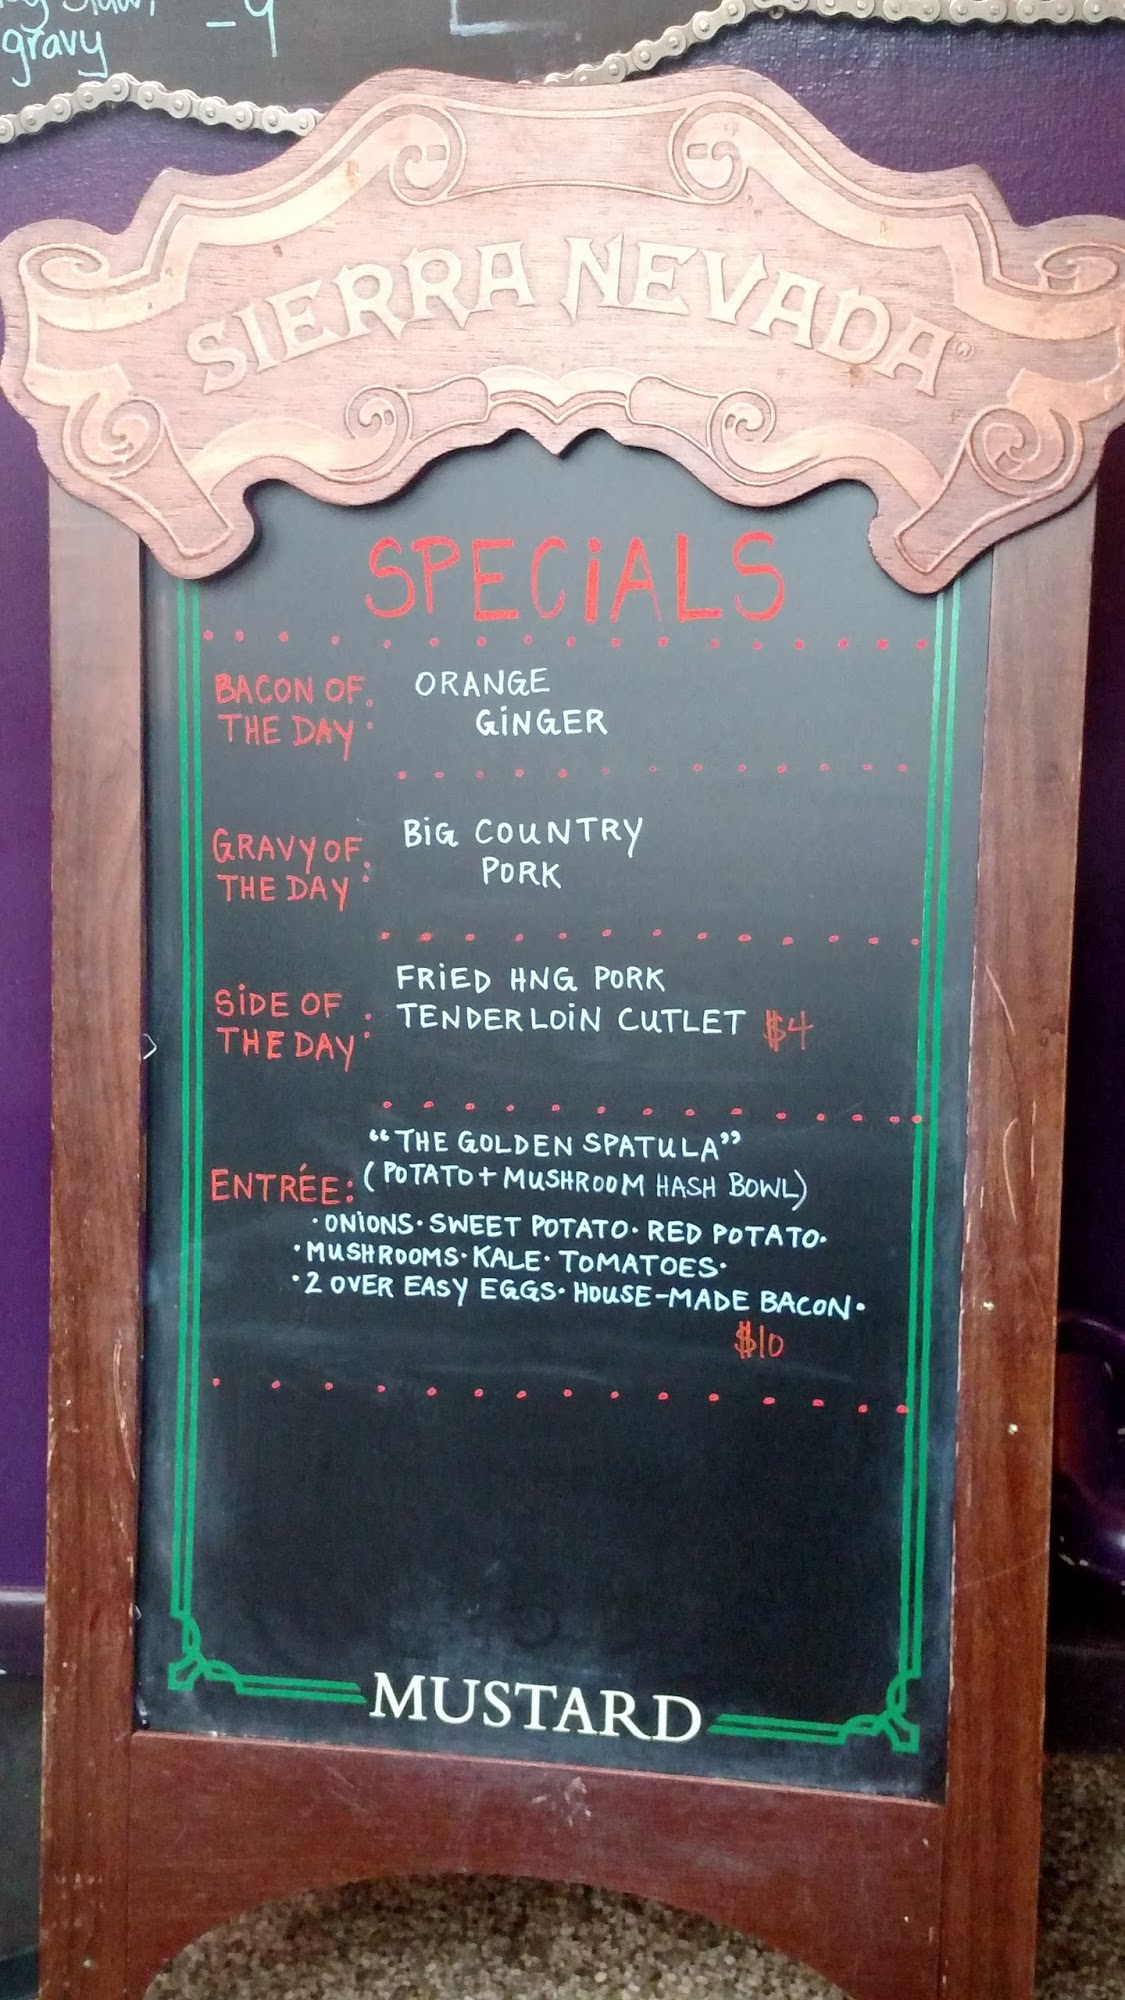 gravy -9
SIERRA NEVADA®
SPECiALS
BACON OF THE DAY: ORANGE GiNGER
GRAVY OF THE DAY: BiG COUNTRY PORK
SiDE OF THE DAY: FRiED HNG PORK TENDERLOiN CUTLET $4
"THE GOLDEN SPATULA"
ENTRÉE: (POTATO + MUSHROOM HASH BOWL)
· ONiONS · SWEET POTATO · RED POTATO ·
· MUSHROOMS · KALE · TOMATOES ·
· 2 OVER EASY EGGS · HOUSE-MADE BACON ·
$10
MUSTARD